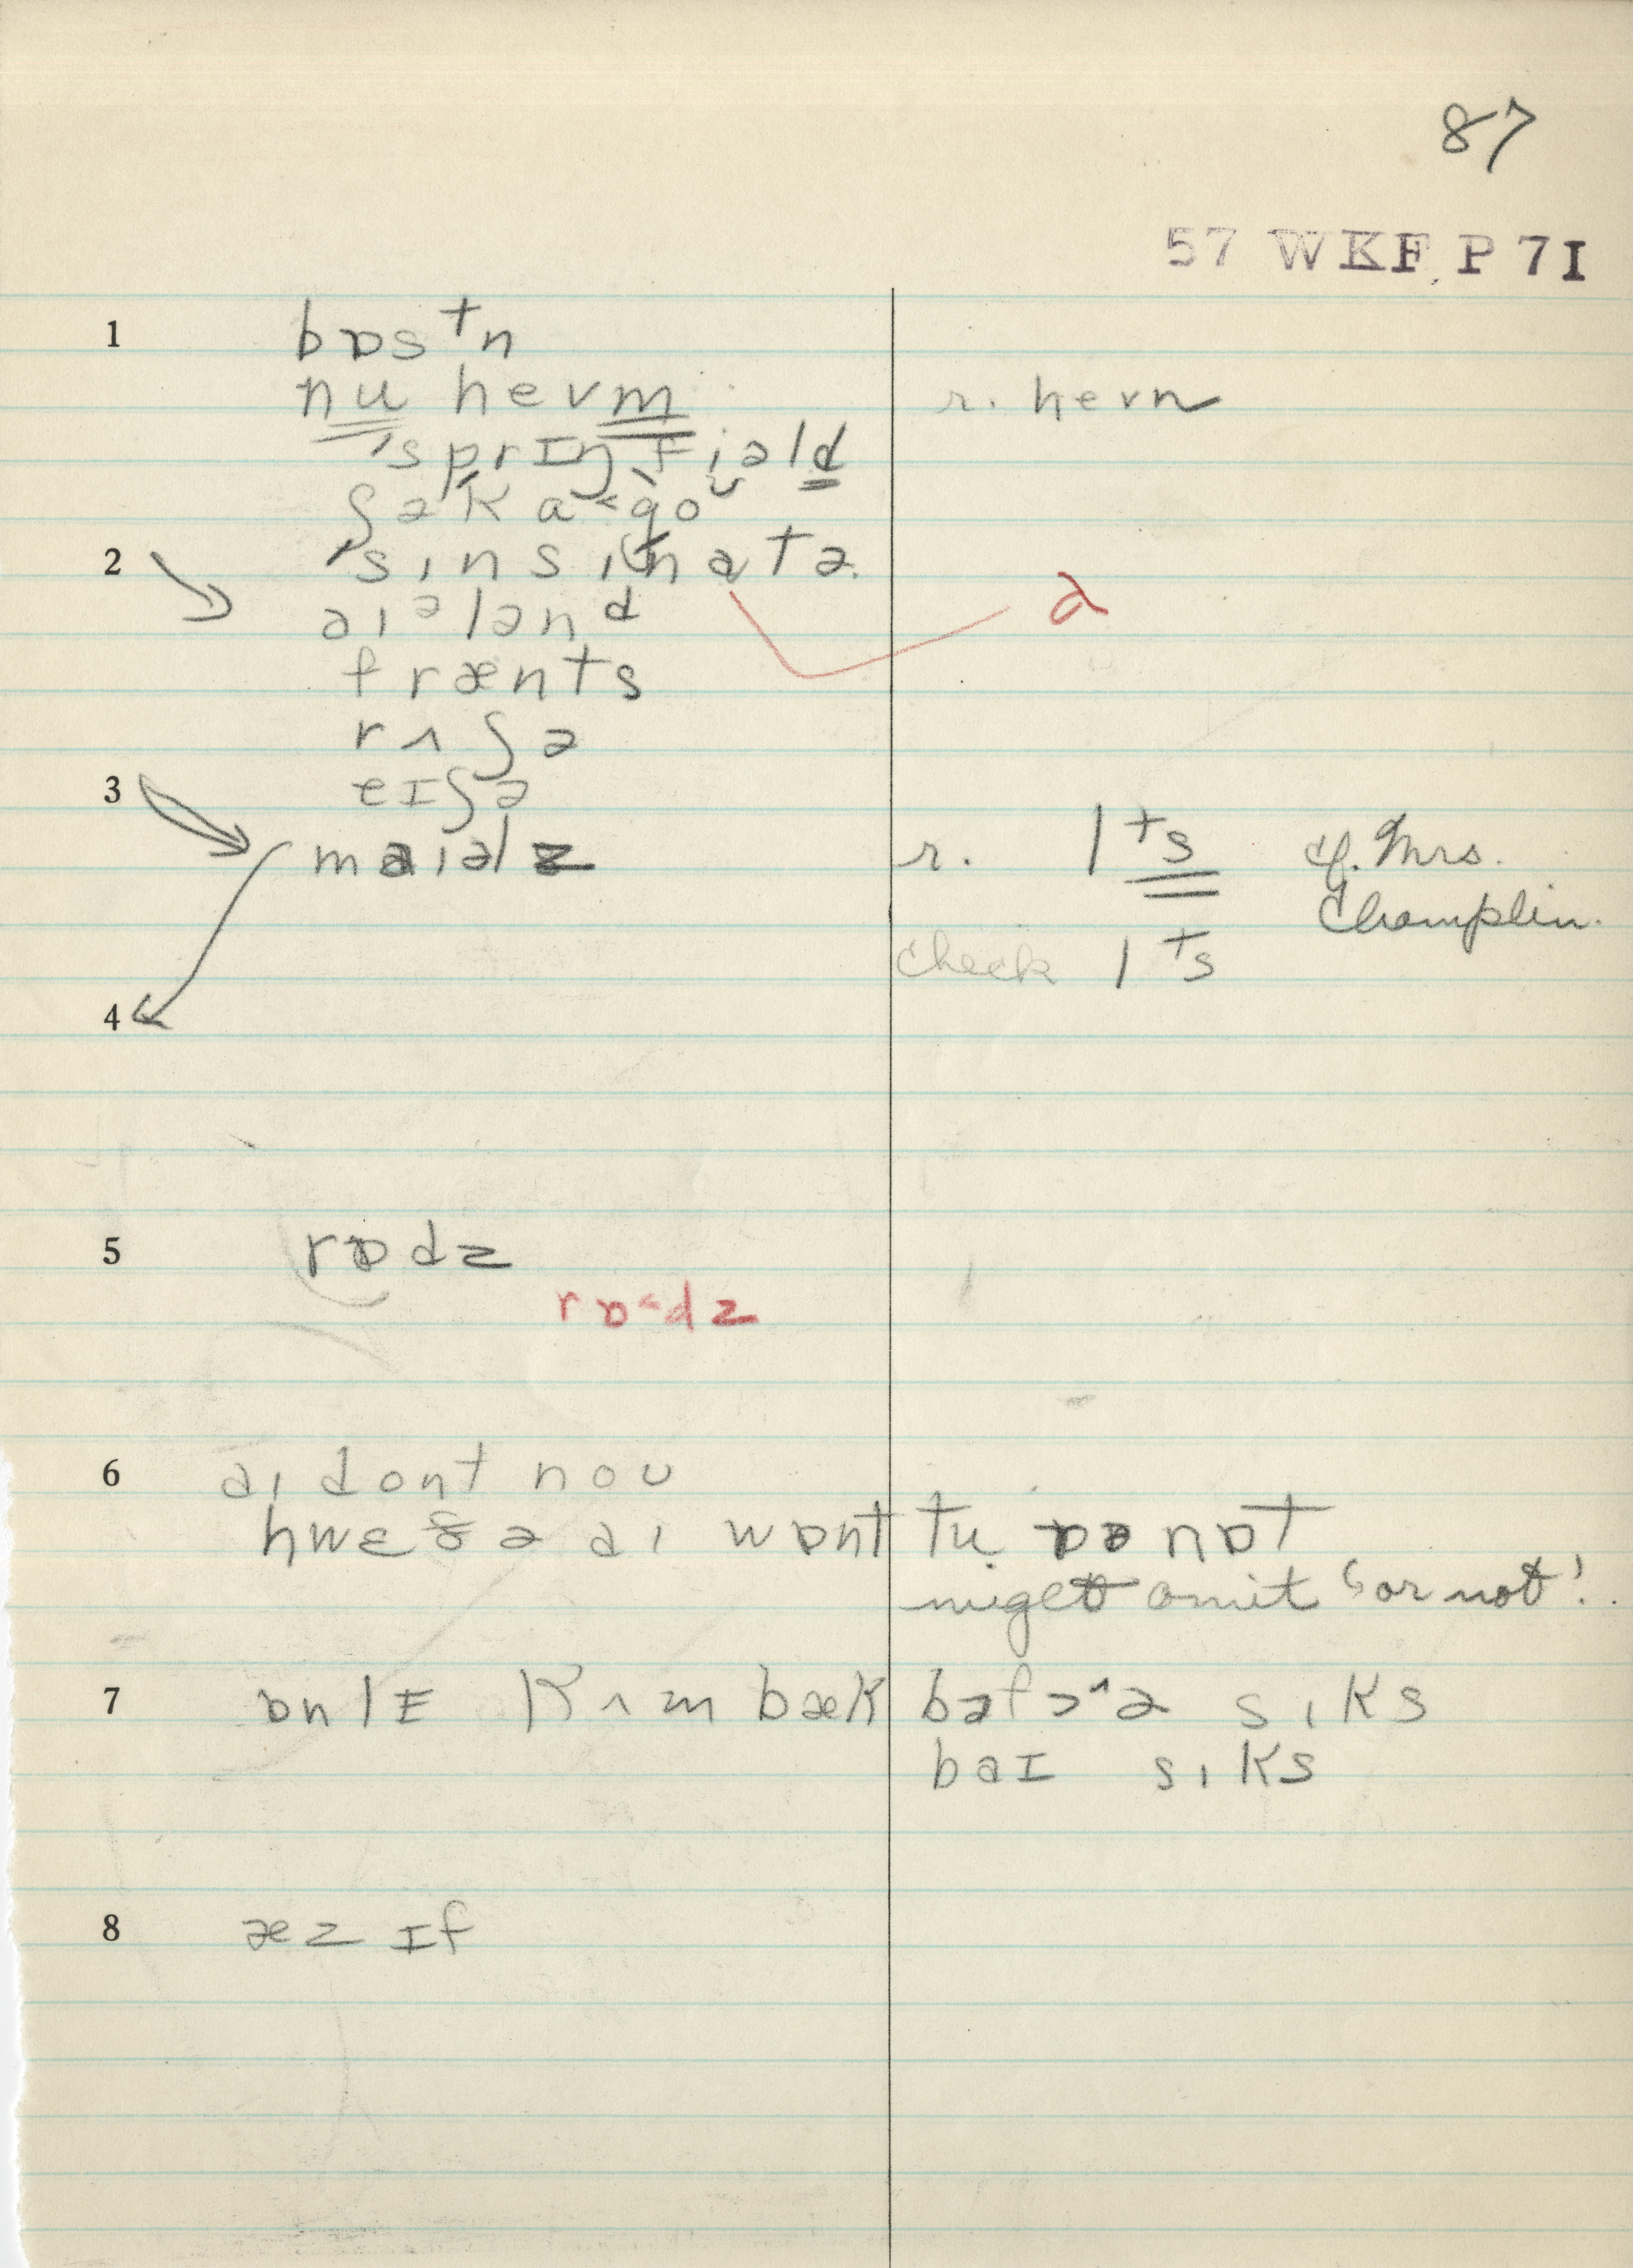 87
57 WKF P 71
1 bɒsᵗn
nu hevm r. hevn
ˈsprɪŋˌfiəld
ʃəkɑ˂goᵘ
2 ˈsɪnsɪnatə ə
aɪᵊlənᵈ
frænts
rʌʃə
3 eɪʃə
maɪəlz r. lᵗs cf. Mrs. Champlin.
check lᵗs
4
5 rɒdz
rɒ˂dz
6 aɪ dont noʊ
hwɛðə aɪ wɒnt tu ɒə nɒt
might omit 'or not'.
7 ɒnlɪ kʌm bæk bəfɔ^ə sɪks
baɪ sɪks
8 æz ɪf